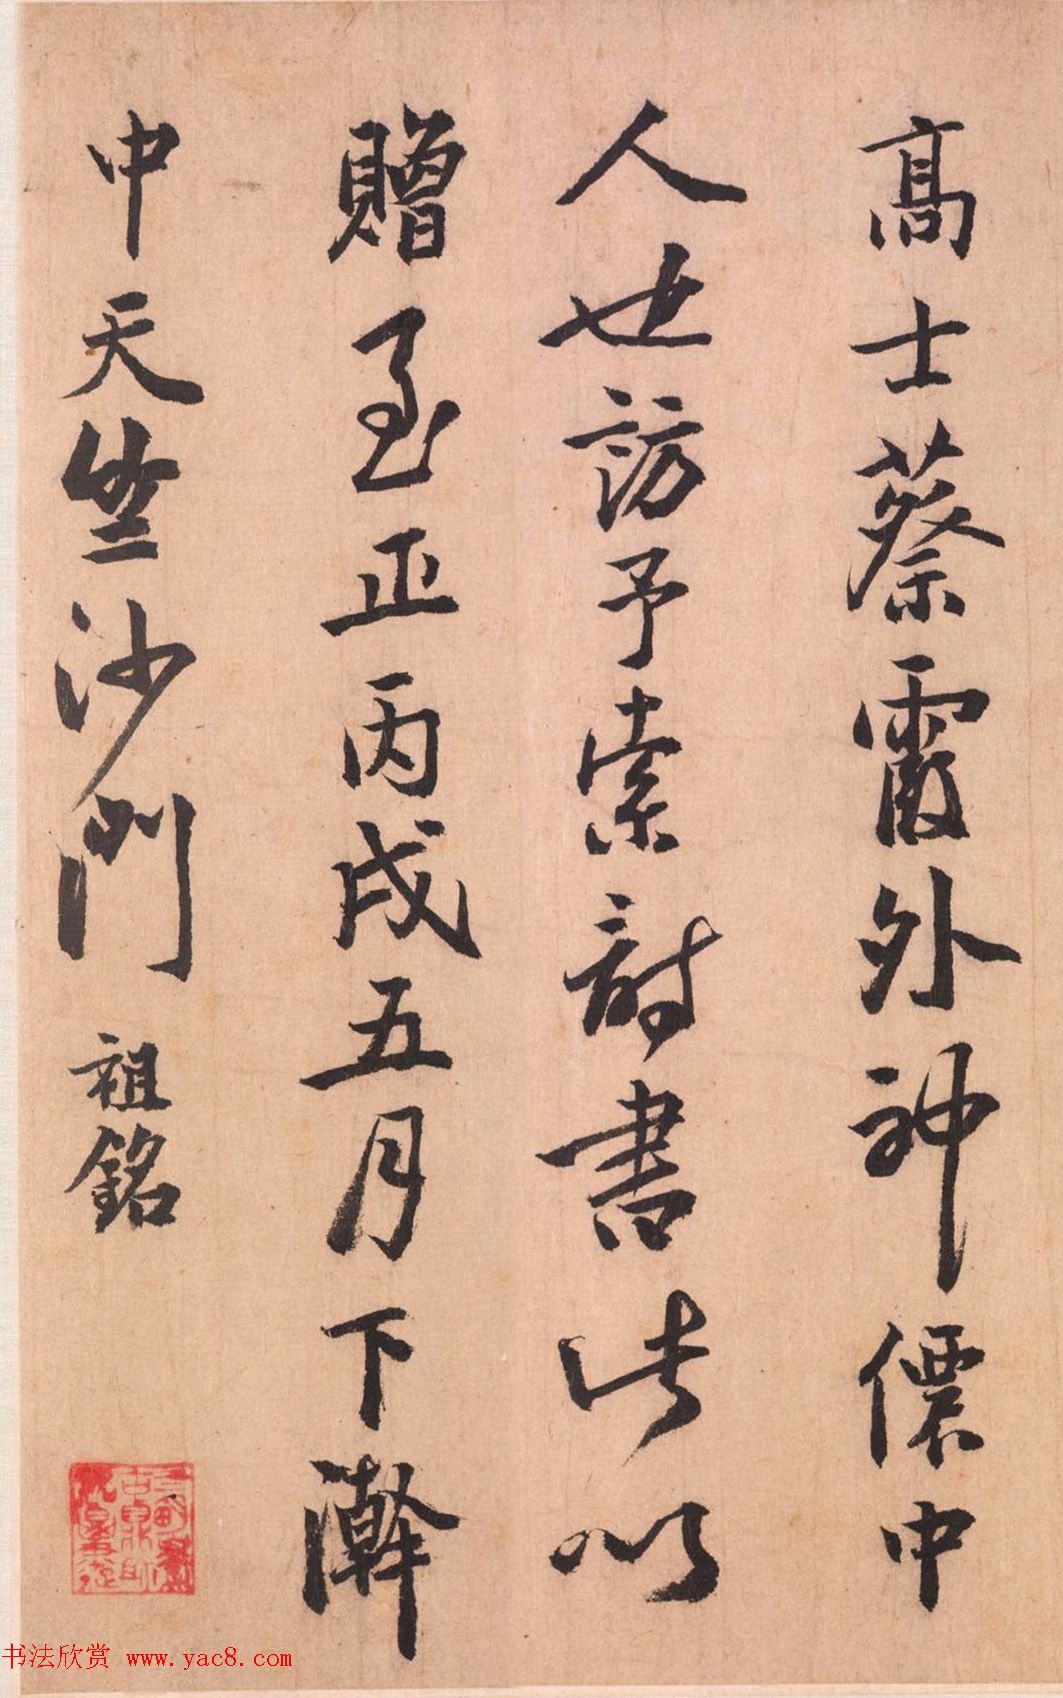 高士蔡霞外神僊中
人也訪予索詩書此以
贈至正丙戌五月下澣
中天竺沙門 祖銘
书法欣赏 www.yac8.com